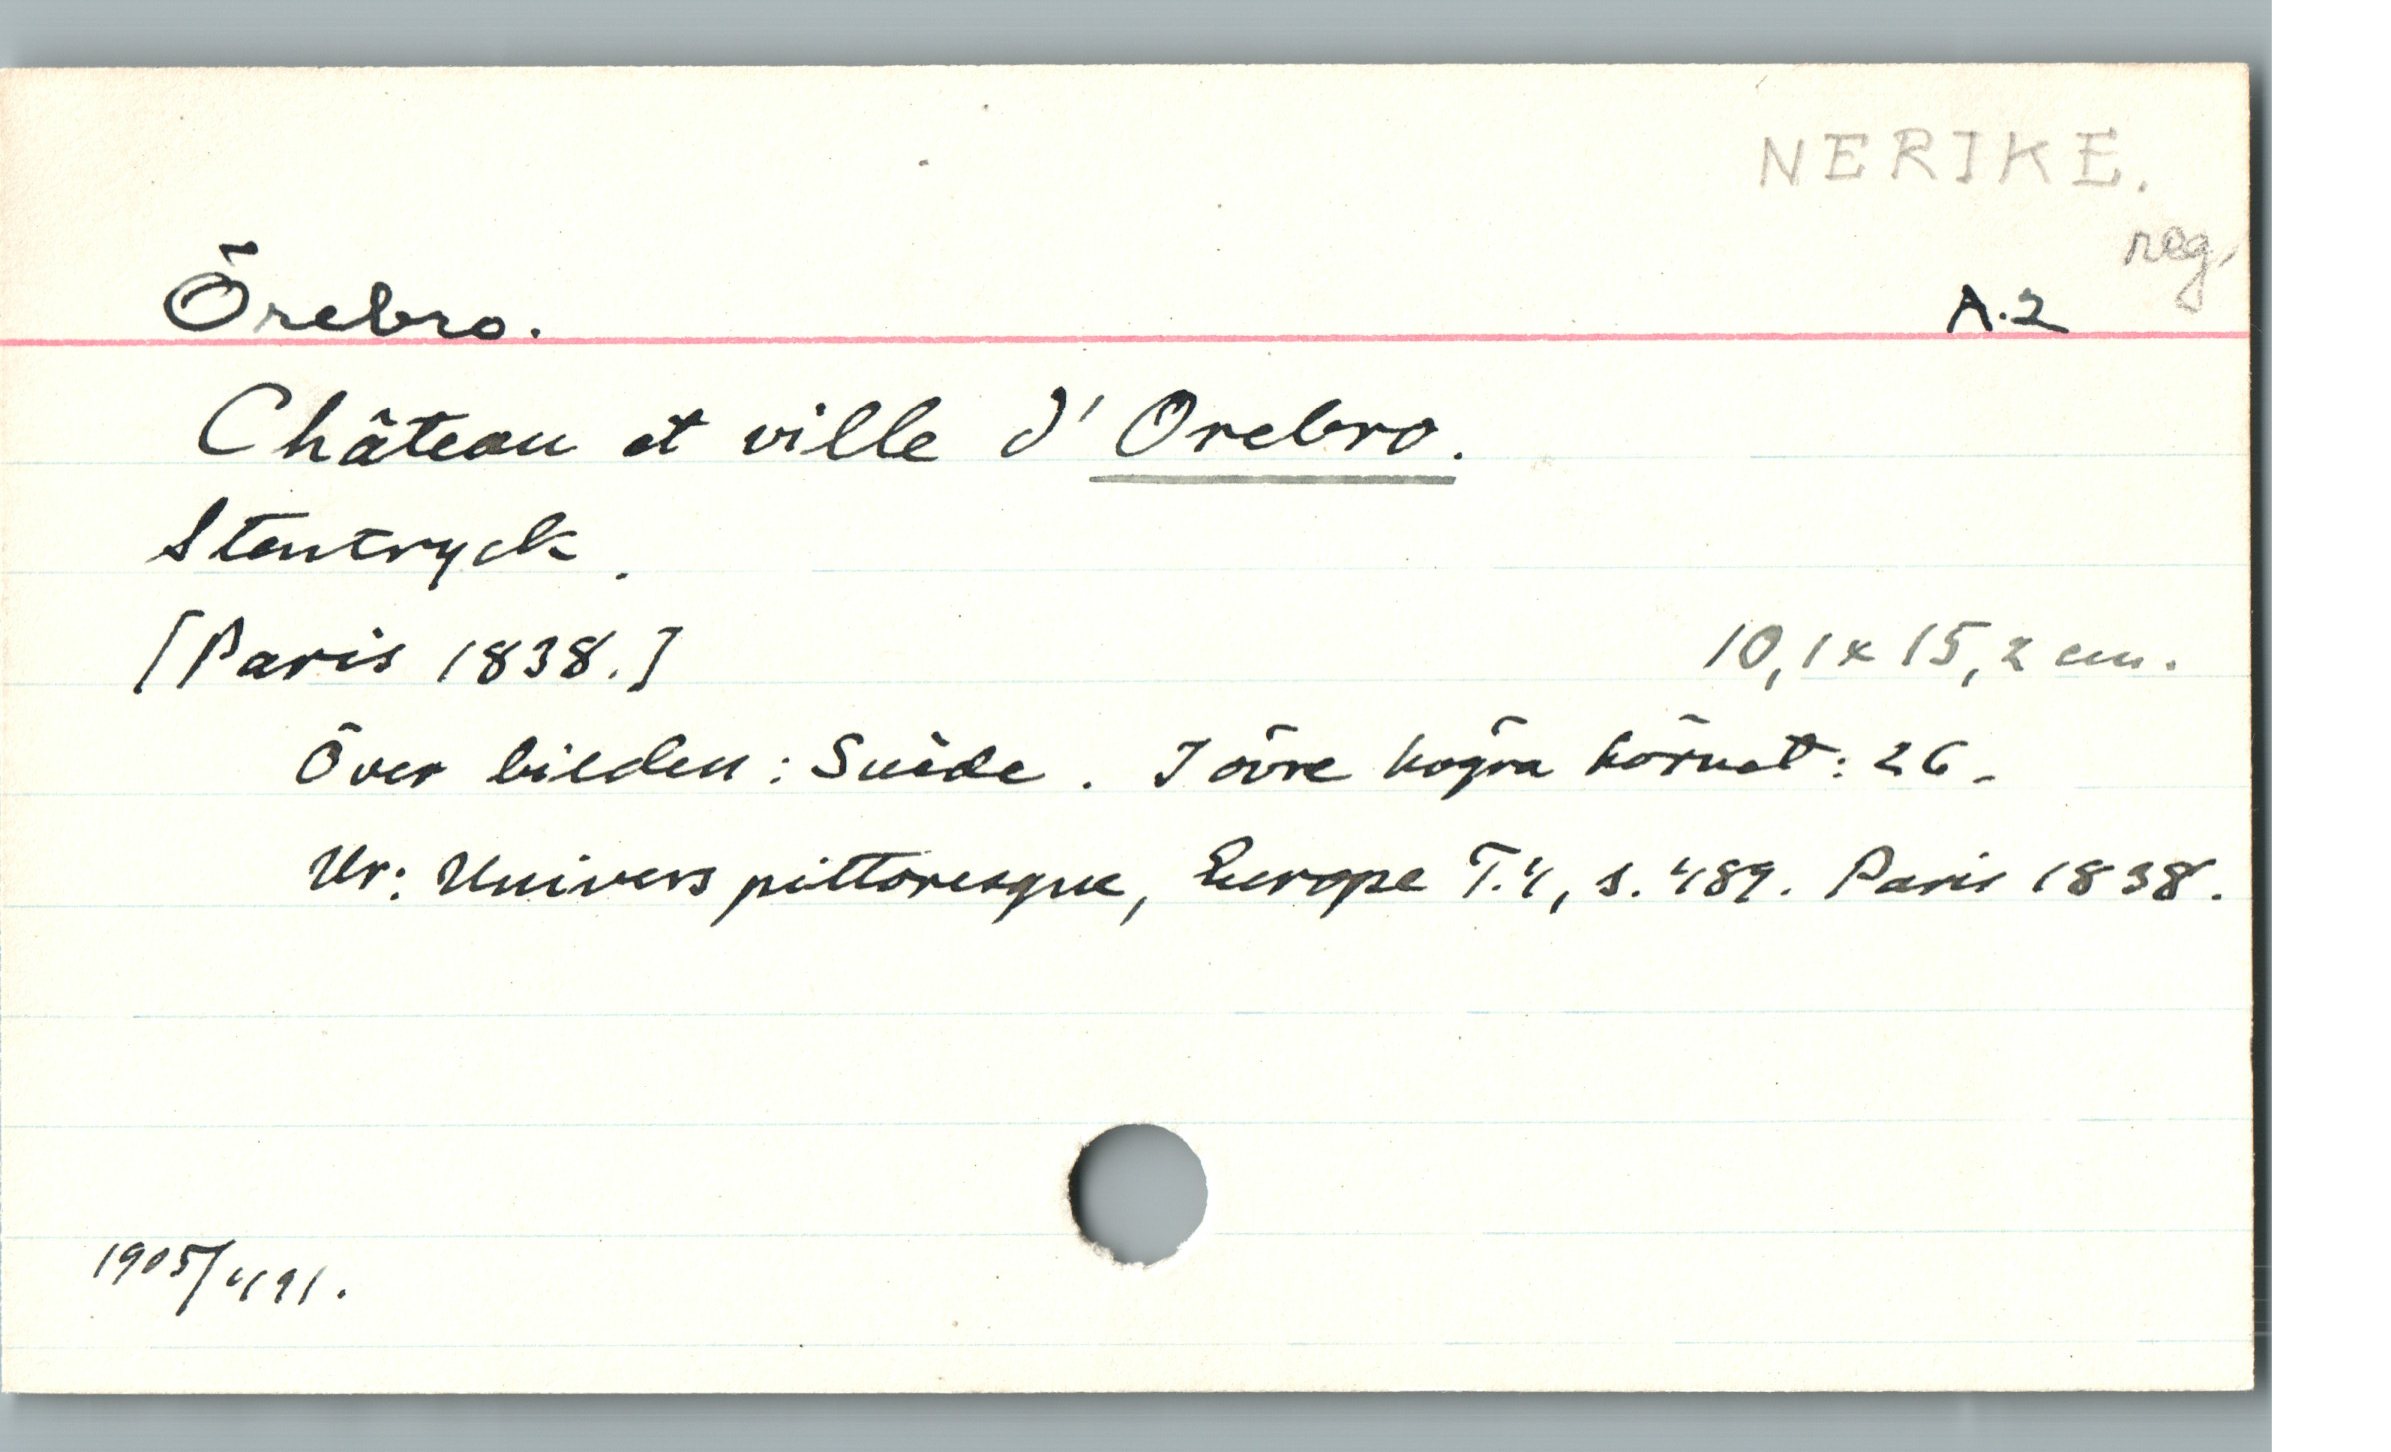 NERIKE.
reg.
Örebro. A.2
Château et ville d'Orebro.
Stentryck.
[Paris 1838.] 10,1 x 15,2 cm.
Över bilden: Suède. I övre högra hörnet: 26.
Ur: Univers pittoresque, Europe T.4, s. 489. Paris 1838.
1905/491.